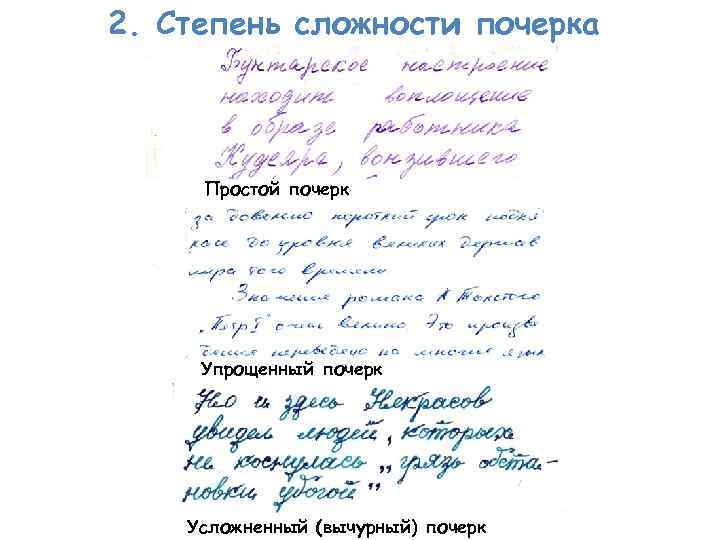 2. Степень сложности почерка
Бунтарское настроение
находит воплощение
в образе работника
Кудеяра, вонзившего
Простой почерк
за довольно короткий срок подня
ло до уровня великих держав
мира того времени
Значение романа А Толстого
„Петр I" очень велико Это произве
дение переведено на многие язык
Упрощенный почерк
Но и здесь Некрасов
увидел людей, которых
не коснулась „грязь обста-
новки убогой"
Усложненный (вычурный) почерк